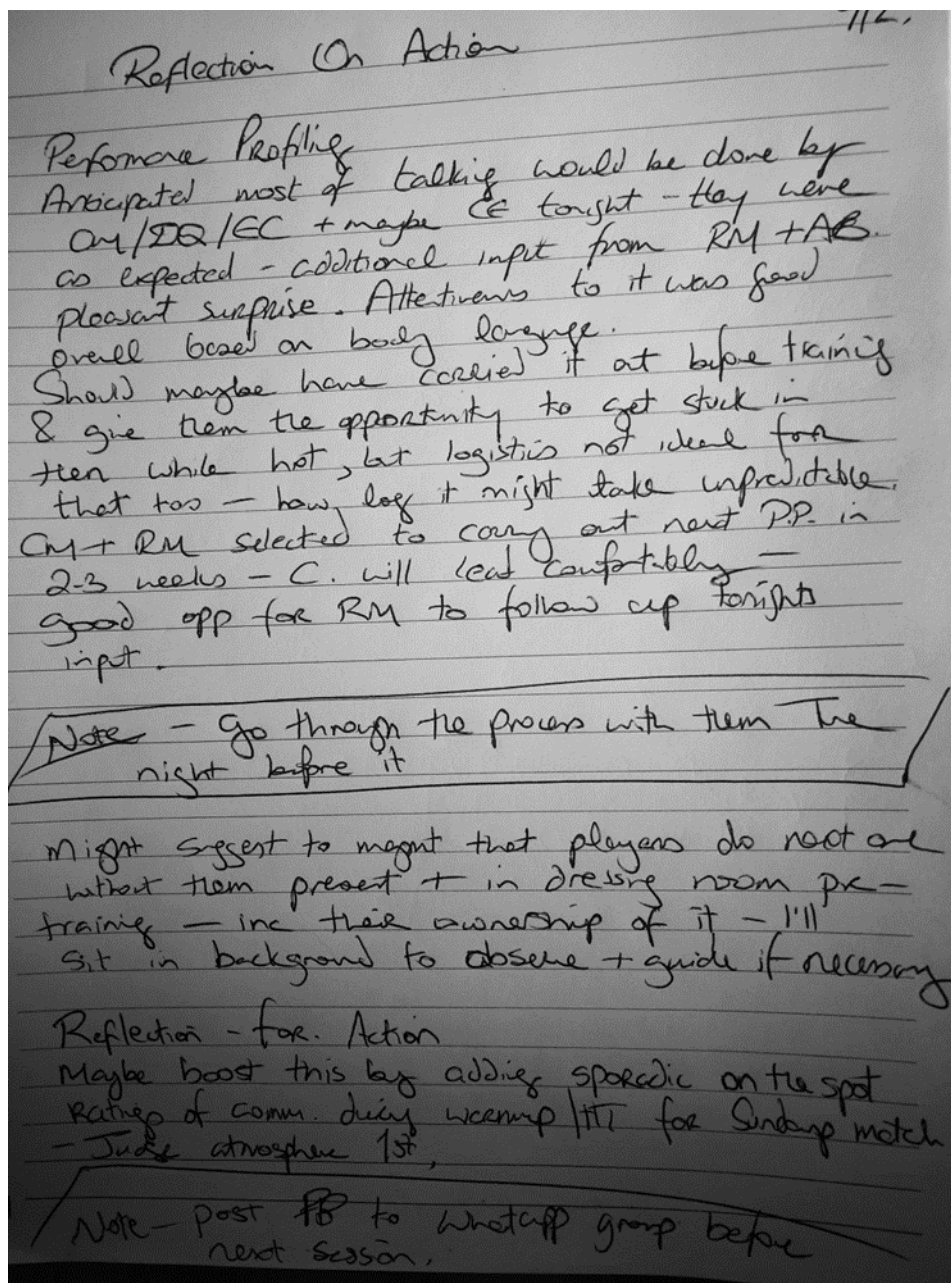 Reflection On Action
Perfomance Profiling
Anticipated most of talking would be done by
CM/DQ/EC + maybe CE tonight - they were
as expected - additional input from RM + AB.
pleasant surprise. Attentiveness to it was good
overall based on body language.
Should maybe have carried it out before training
& give them the opportunity to get stuck in
then while hot, but logistics not ideal for
that too - how long it might take unpredictable.
CM + RM selected to carry out next P.P. in
2-3 weeks - C. will lead comfortably -
good opp for RM to follow up tonights
input.
Note - Go through the process with them The
night before it
Might suggest to megmt that players do next one
without them present + in dressing room pre-
training - inc their ownership of it - I'll
sit in background to observe + guide if necessary
Reflection - for. Action
Maybe boost this by adding sporadic on the spot
ratings of comm. during warmup/HT for Sundays match
- Judge atmosphere 1st,
Note - post to whatapp group before
next session.